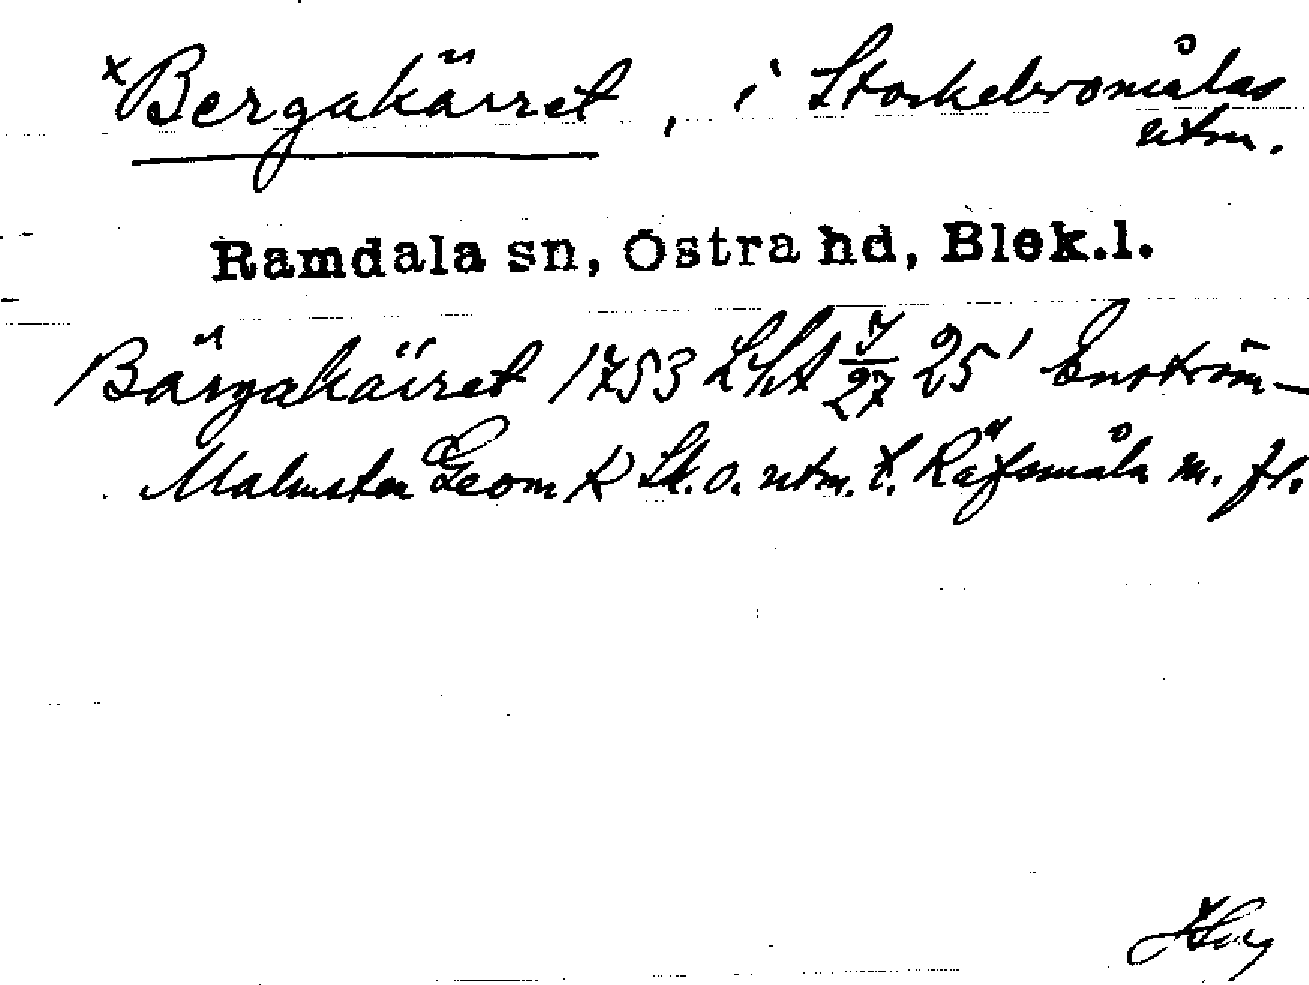 x Bergakärret, i Stockebromålas
utm.
Ramdala sn, Östra hd, Blek.l.
Bärgakäret 1753 Lht 7/27 25' Enström-
Malmsten Geom K Sk. o. utm. t. Räfsmåla m. fl.